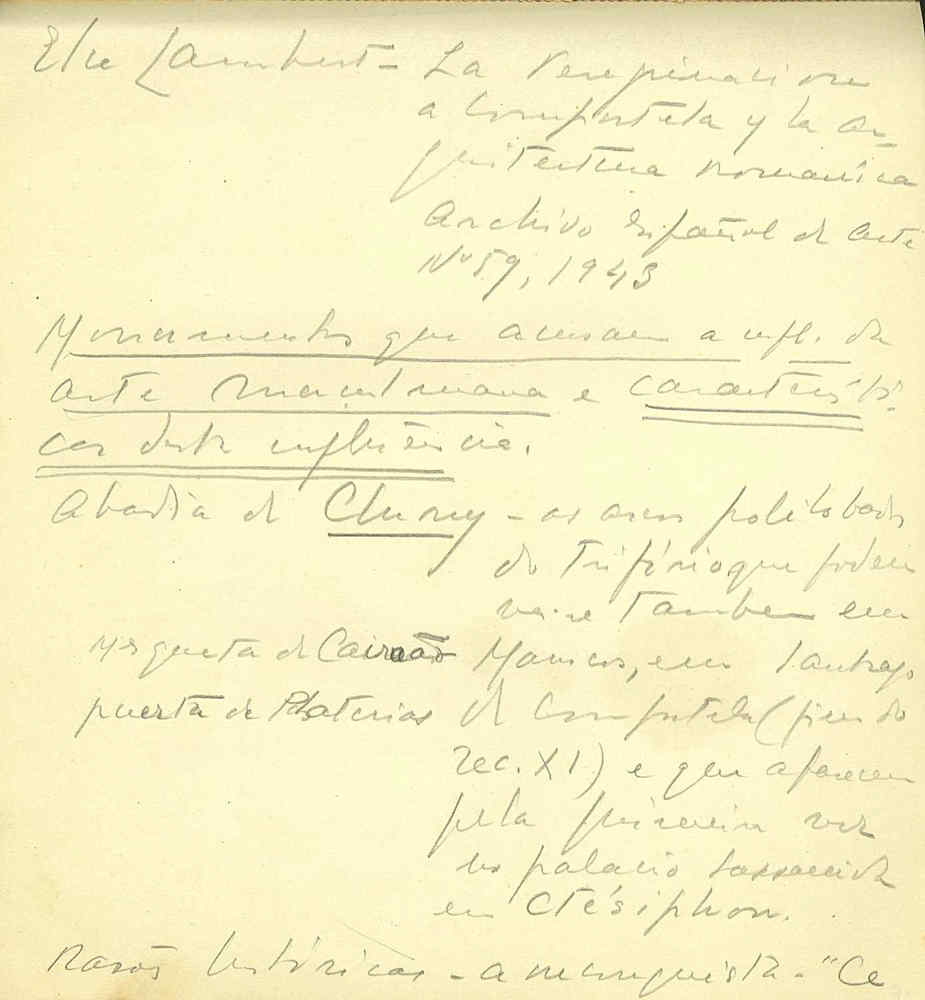 Elie Lambert - La Peregrinacion
a Compostela y la ar-
quitectura romanica
Archivo Español de Arte
Nº 59, 1943
Monumentos que acusam a infl. da
arte muçulmana e caracterís ti-
cas desta influência.
Abadia de Cluny - os arcos polilobados
do Trifório que podem
ver-se Tambem em
Mesquita de Cairoão
puerta de Platerias
em Santiago
de Compostela (fim do
sec. XI) e que aparecem
pela primeira vez
no palacio sassanida
em Ctésiphon.
Rasões históricas - a reconquista - "Ce